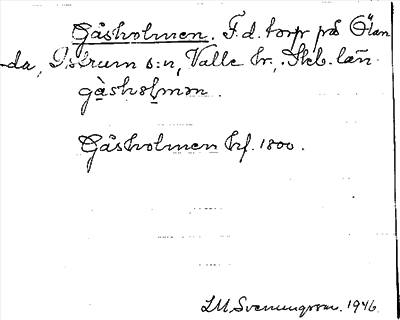 Gåsholmen. F.d. torp på Ölan
da, Istrum s:n, Valle hr., Skb. län.
gåsholmən.
Gåsholmen hf. 1800.
I.M. Svenungsson. 1946.